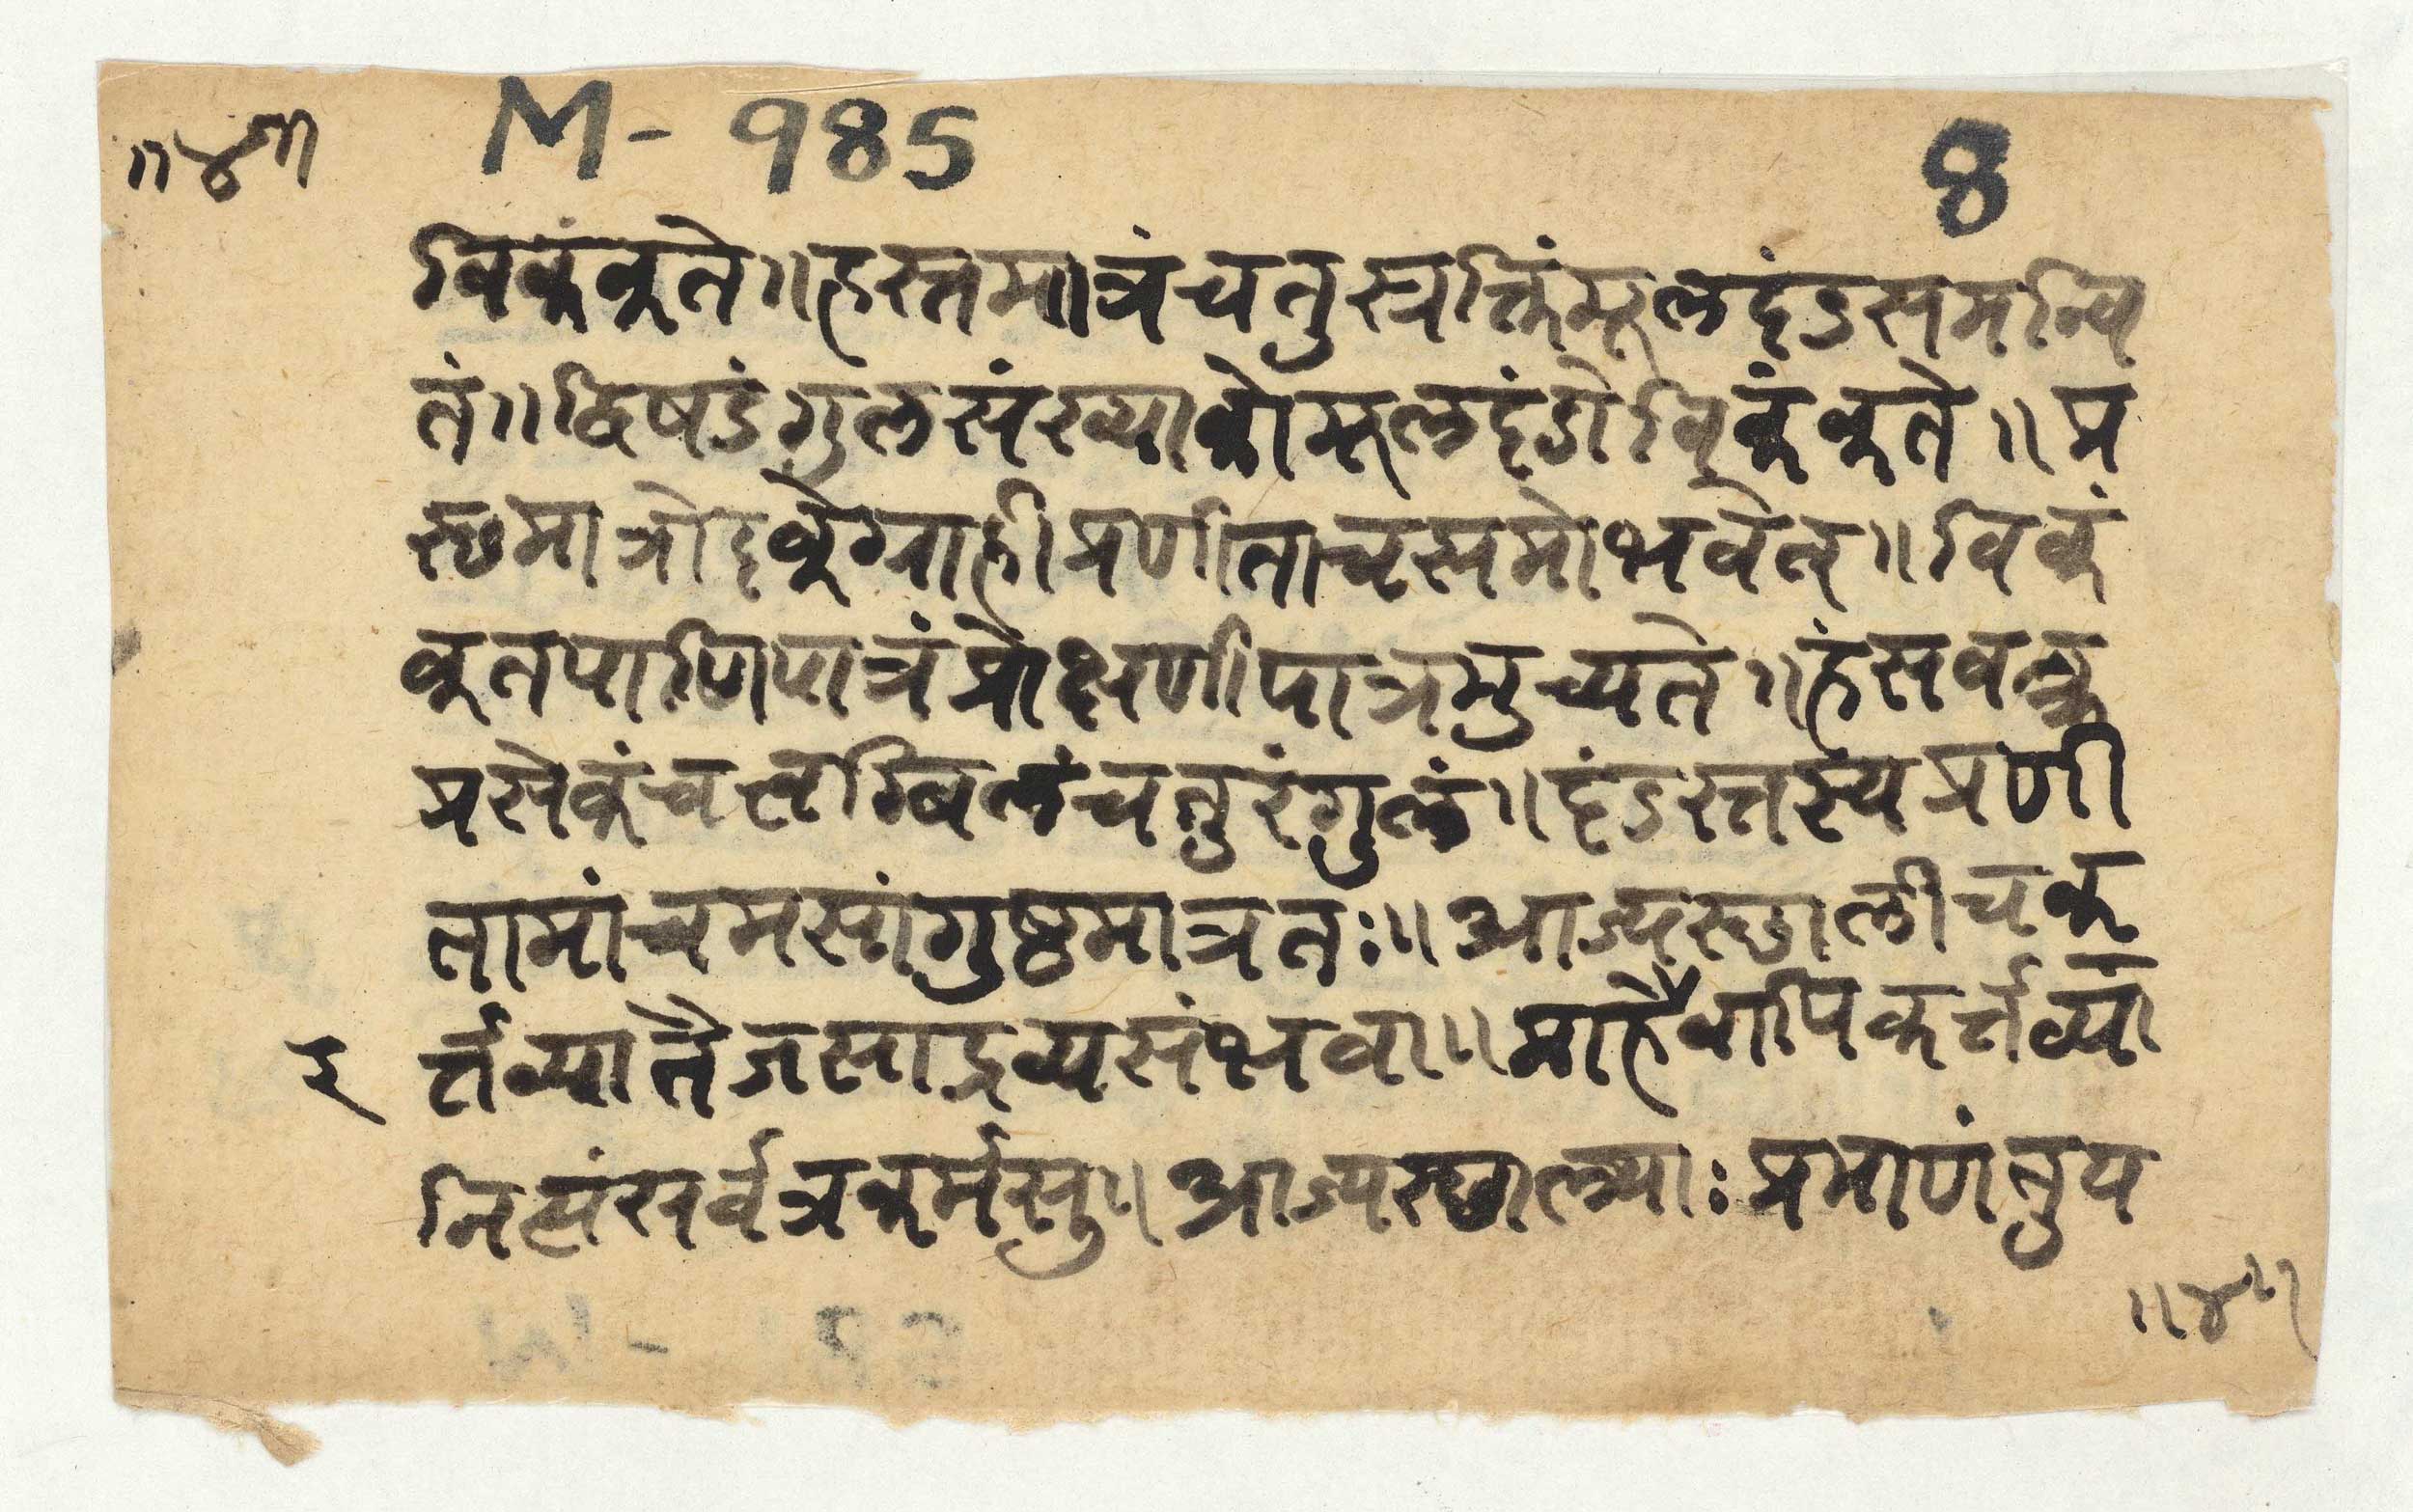 ॥४॥ M- 985 8
विकंकते॥हस्तमात्रंचतुस्त्रक्तिंमूलदंडसमन्वि
तं॥द्विषडंगुलसंख्याकोमूलदंडोविकंकते॥प्र
स्छमात्रोदकेग्राहीप्रणीताचसमोभवेत्॥विकं
कतपाणिपात्रंप्रोक्षणीपात्रमुच्यते॥हंसवन्मु
प्रसेकंचत्वग्बिलंचतुरंगुलं॥दंडस्तस्यप्रणी
तामांचमसांगुष्ठमात्रतः॥आज्यस्छालीचक
र्त्तव्यातैजसाद्रव्यसंभवा॥माहैवापिकर्त्तव्या
र
नित्यंसर्वत्रकर्मसु॥आज्यस्छाल्याःप्रमाणंतुय
॥४॥